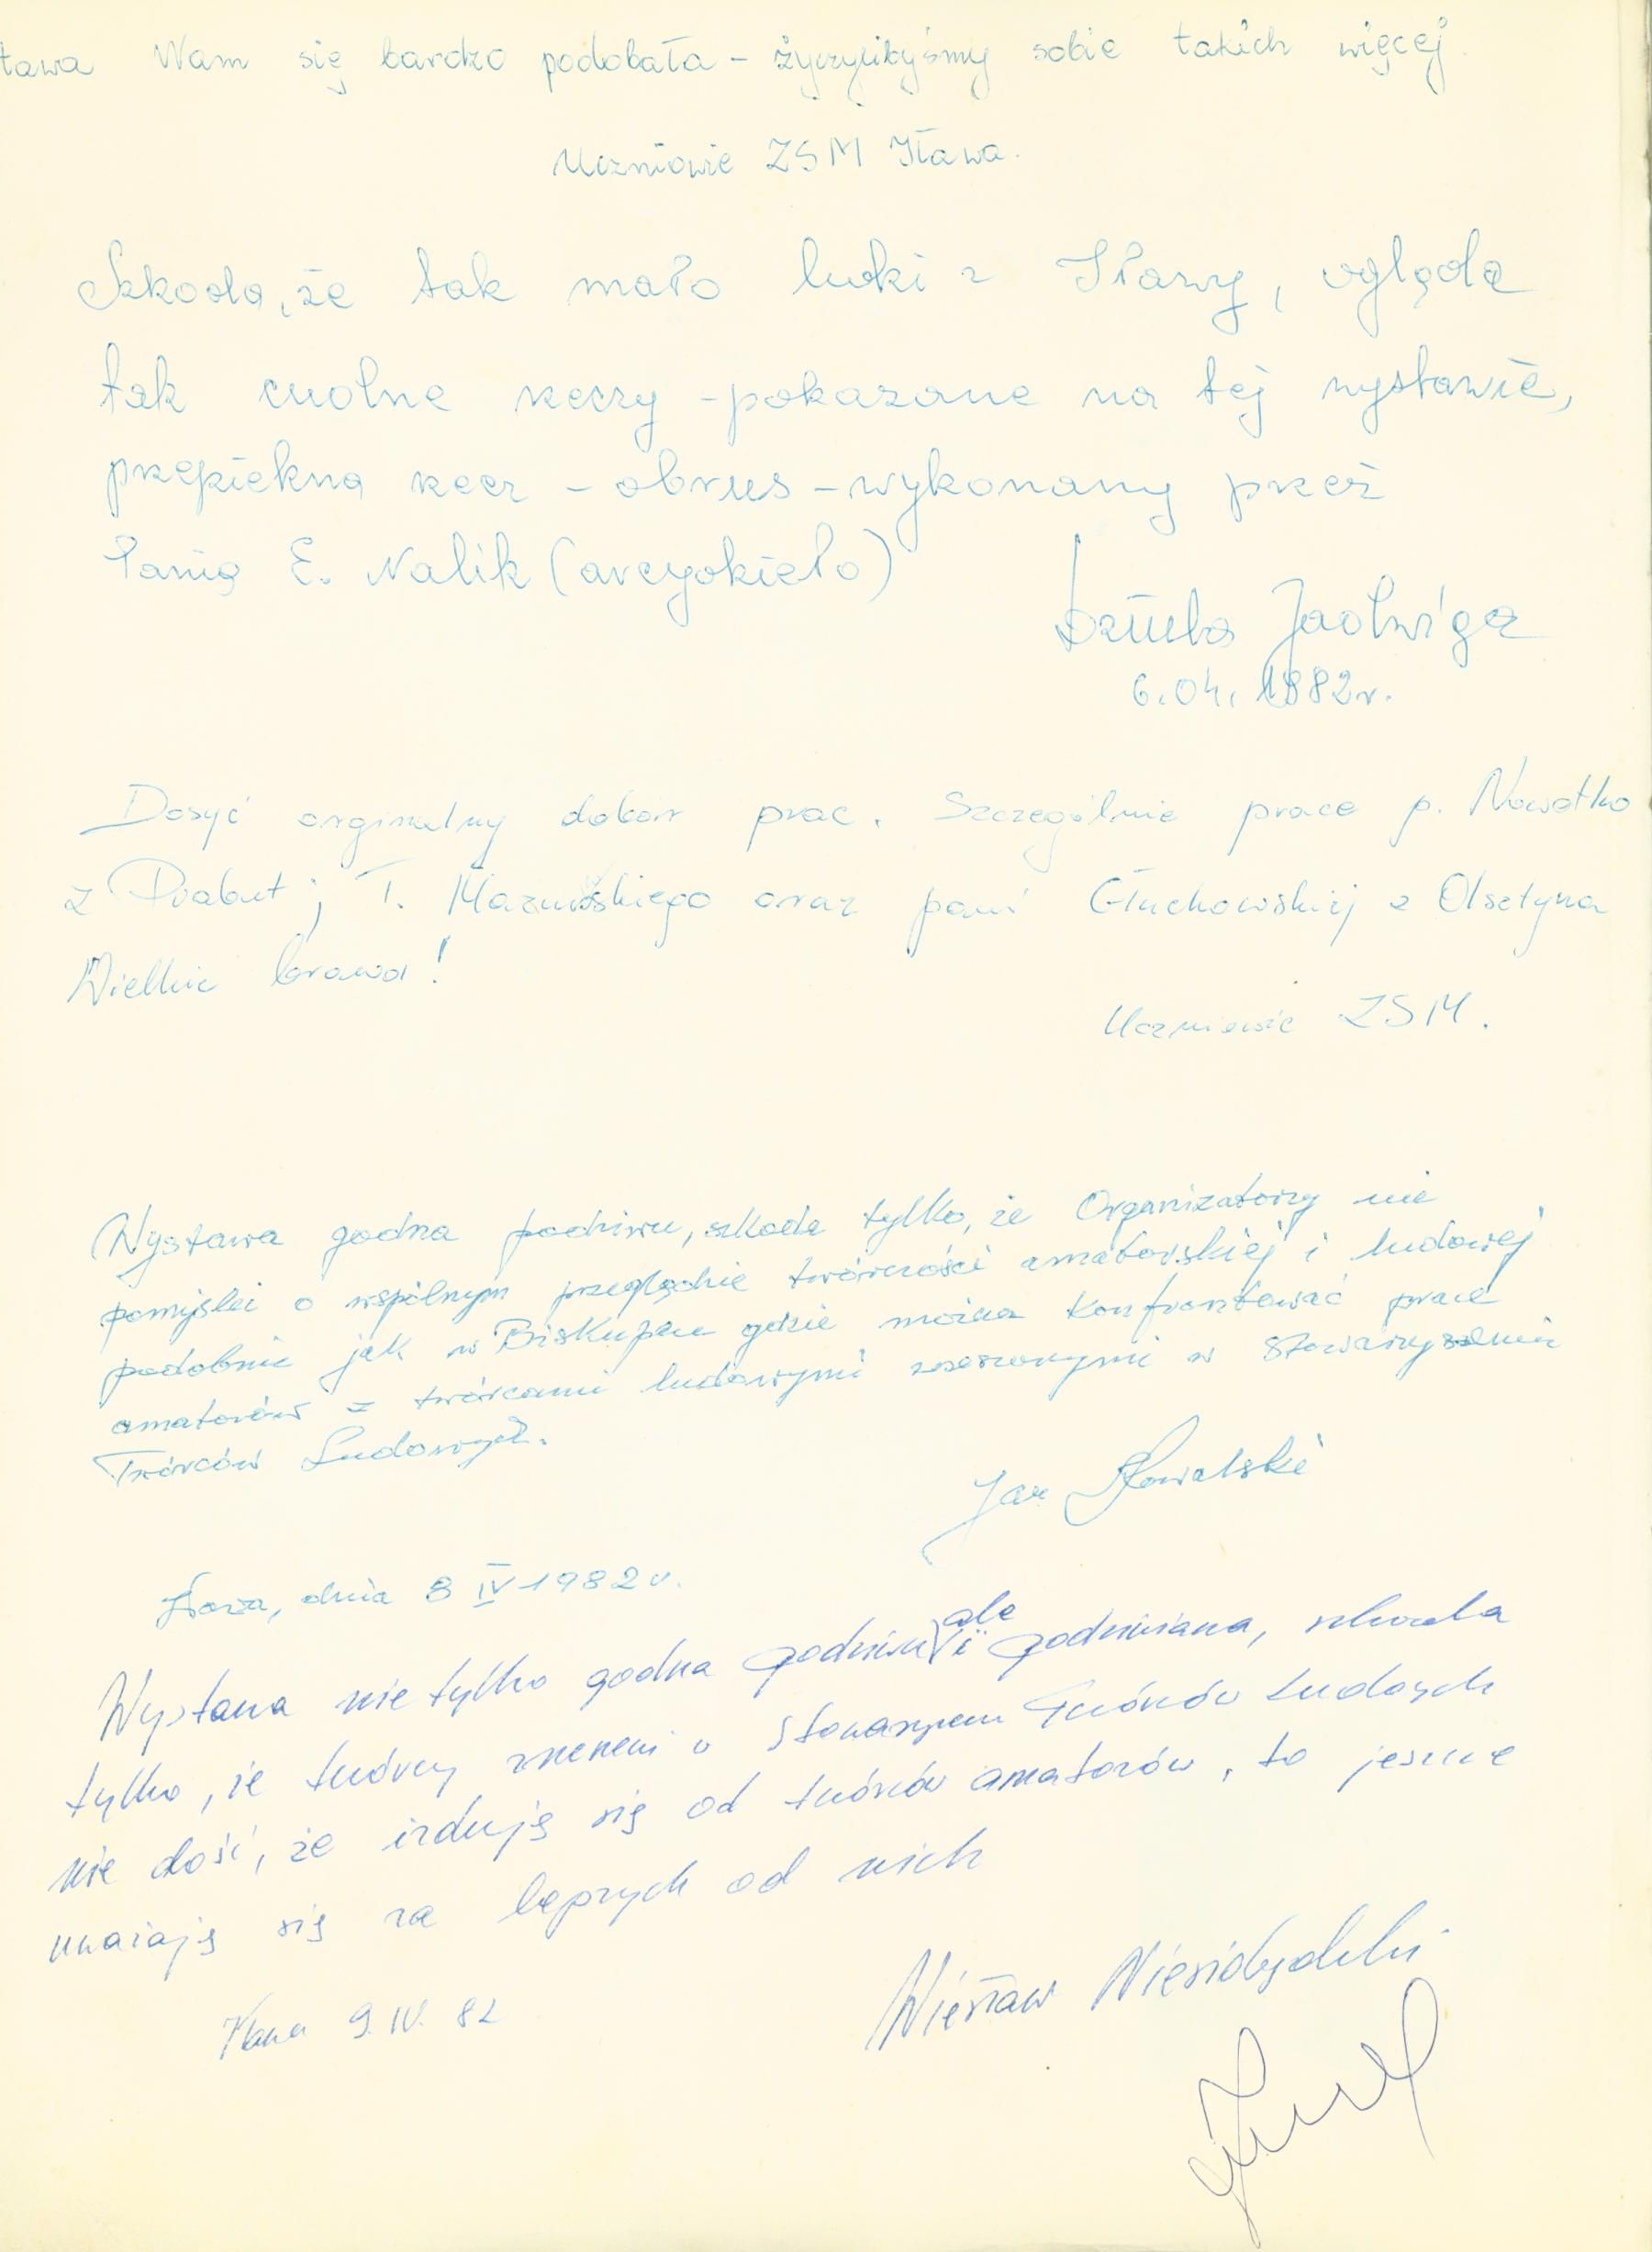 tawa Wam się bardzo podobała - życzylibyśmy sobie takich więcej
Uczniowie ZSM Iława.
Szkoda, że tak mało ludzi z Iławy, ogląda
tak cudne rzeczy - pokazane na tej wystawie,
przepiękna rzecz - obrus - wykonany przez
Panią E. Nalik (arcydzieło)
Jadwiga
6.04.1982r.
Dosyć orginalny dobór prac. Szczególnie prace p. Nowatko
z Prabut; T. Mazurskiego oraz pani Głuchowskiej z Olsztyna
Wielkie brawa!
Uczniowie ZSM.
Wystawa godna podziwu, szkoda tylko, że Organizatorzy nie
pomyśleli o wspólnym przeglądzie twórczości amatorskiej i ludowej
podobnie jak w Biskupcu gdzie można konfrontować prace
amatorów z twórcami ludowymi zrzeszonymi w Stowarzyszeniu
Twórców Ludowych.
Jan Kowalski
Iława, dnia 8 IV 1982 r.
Wystawa nie tylko godna podziwu ale i podziwiana, szkoda
tylko, że twórcy zrzeszeni w Stowarzyszeniu Twórców Ludowych
nie dość, że izolują się od twórców amatorów, to jeszcze
uważają się za lepszych od nich
Iława 9. IV. 82
Wiesław Niesiobędzki